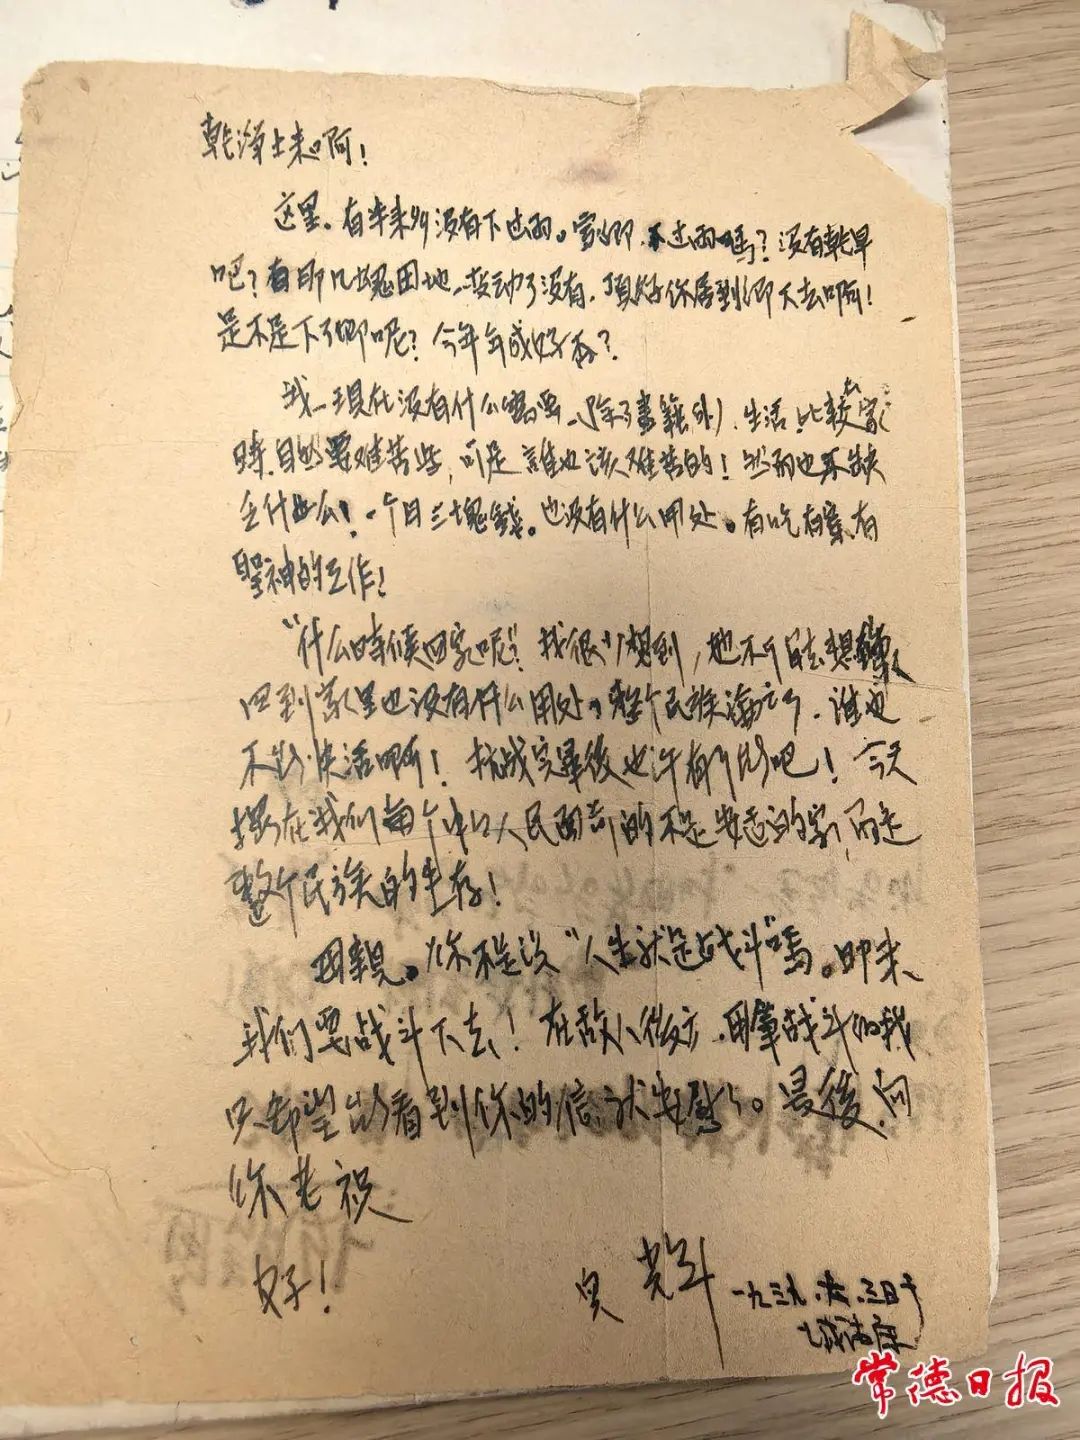 乾净土来啊！
这里。有半来月没有下过雨。家乡，下过雨吗？没有乾旱
吧？有那几块田地、变动了没有，頂好你居到乡下去啊！
是不是下了乡呢？今年年成好否？
我、現在没有什么需要、（除了書籍外）、生活比較在家
時、自然要难苦些，可是誰也该难苦的！然而也不缺
乏什么！一个月三块錢。也没有什么用处。有吃有穿、有
聖神的工作！
“什么時候回家呢”？我很少想到，也不去想
回到家里也没有什么用处。整个民族淪亡了、谁也
不能快活啊！抗战完畢後也许有可能吧！今天
摆在我们每个中国人民面前的不是安逸的家，而是
整个民族的生存！
母親。你不是说“人生就是战斗”嗎。即来
我们要战斗下去！在敌人後方，用筆战斗的我
只希望能看到你的信、就安慰了。最後，问
你老祝
好！
一九三九、六、三日于
常德日报